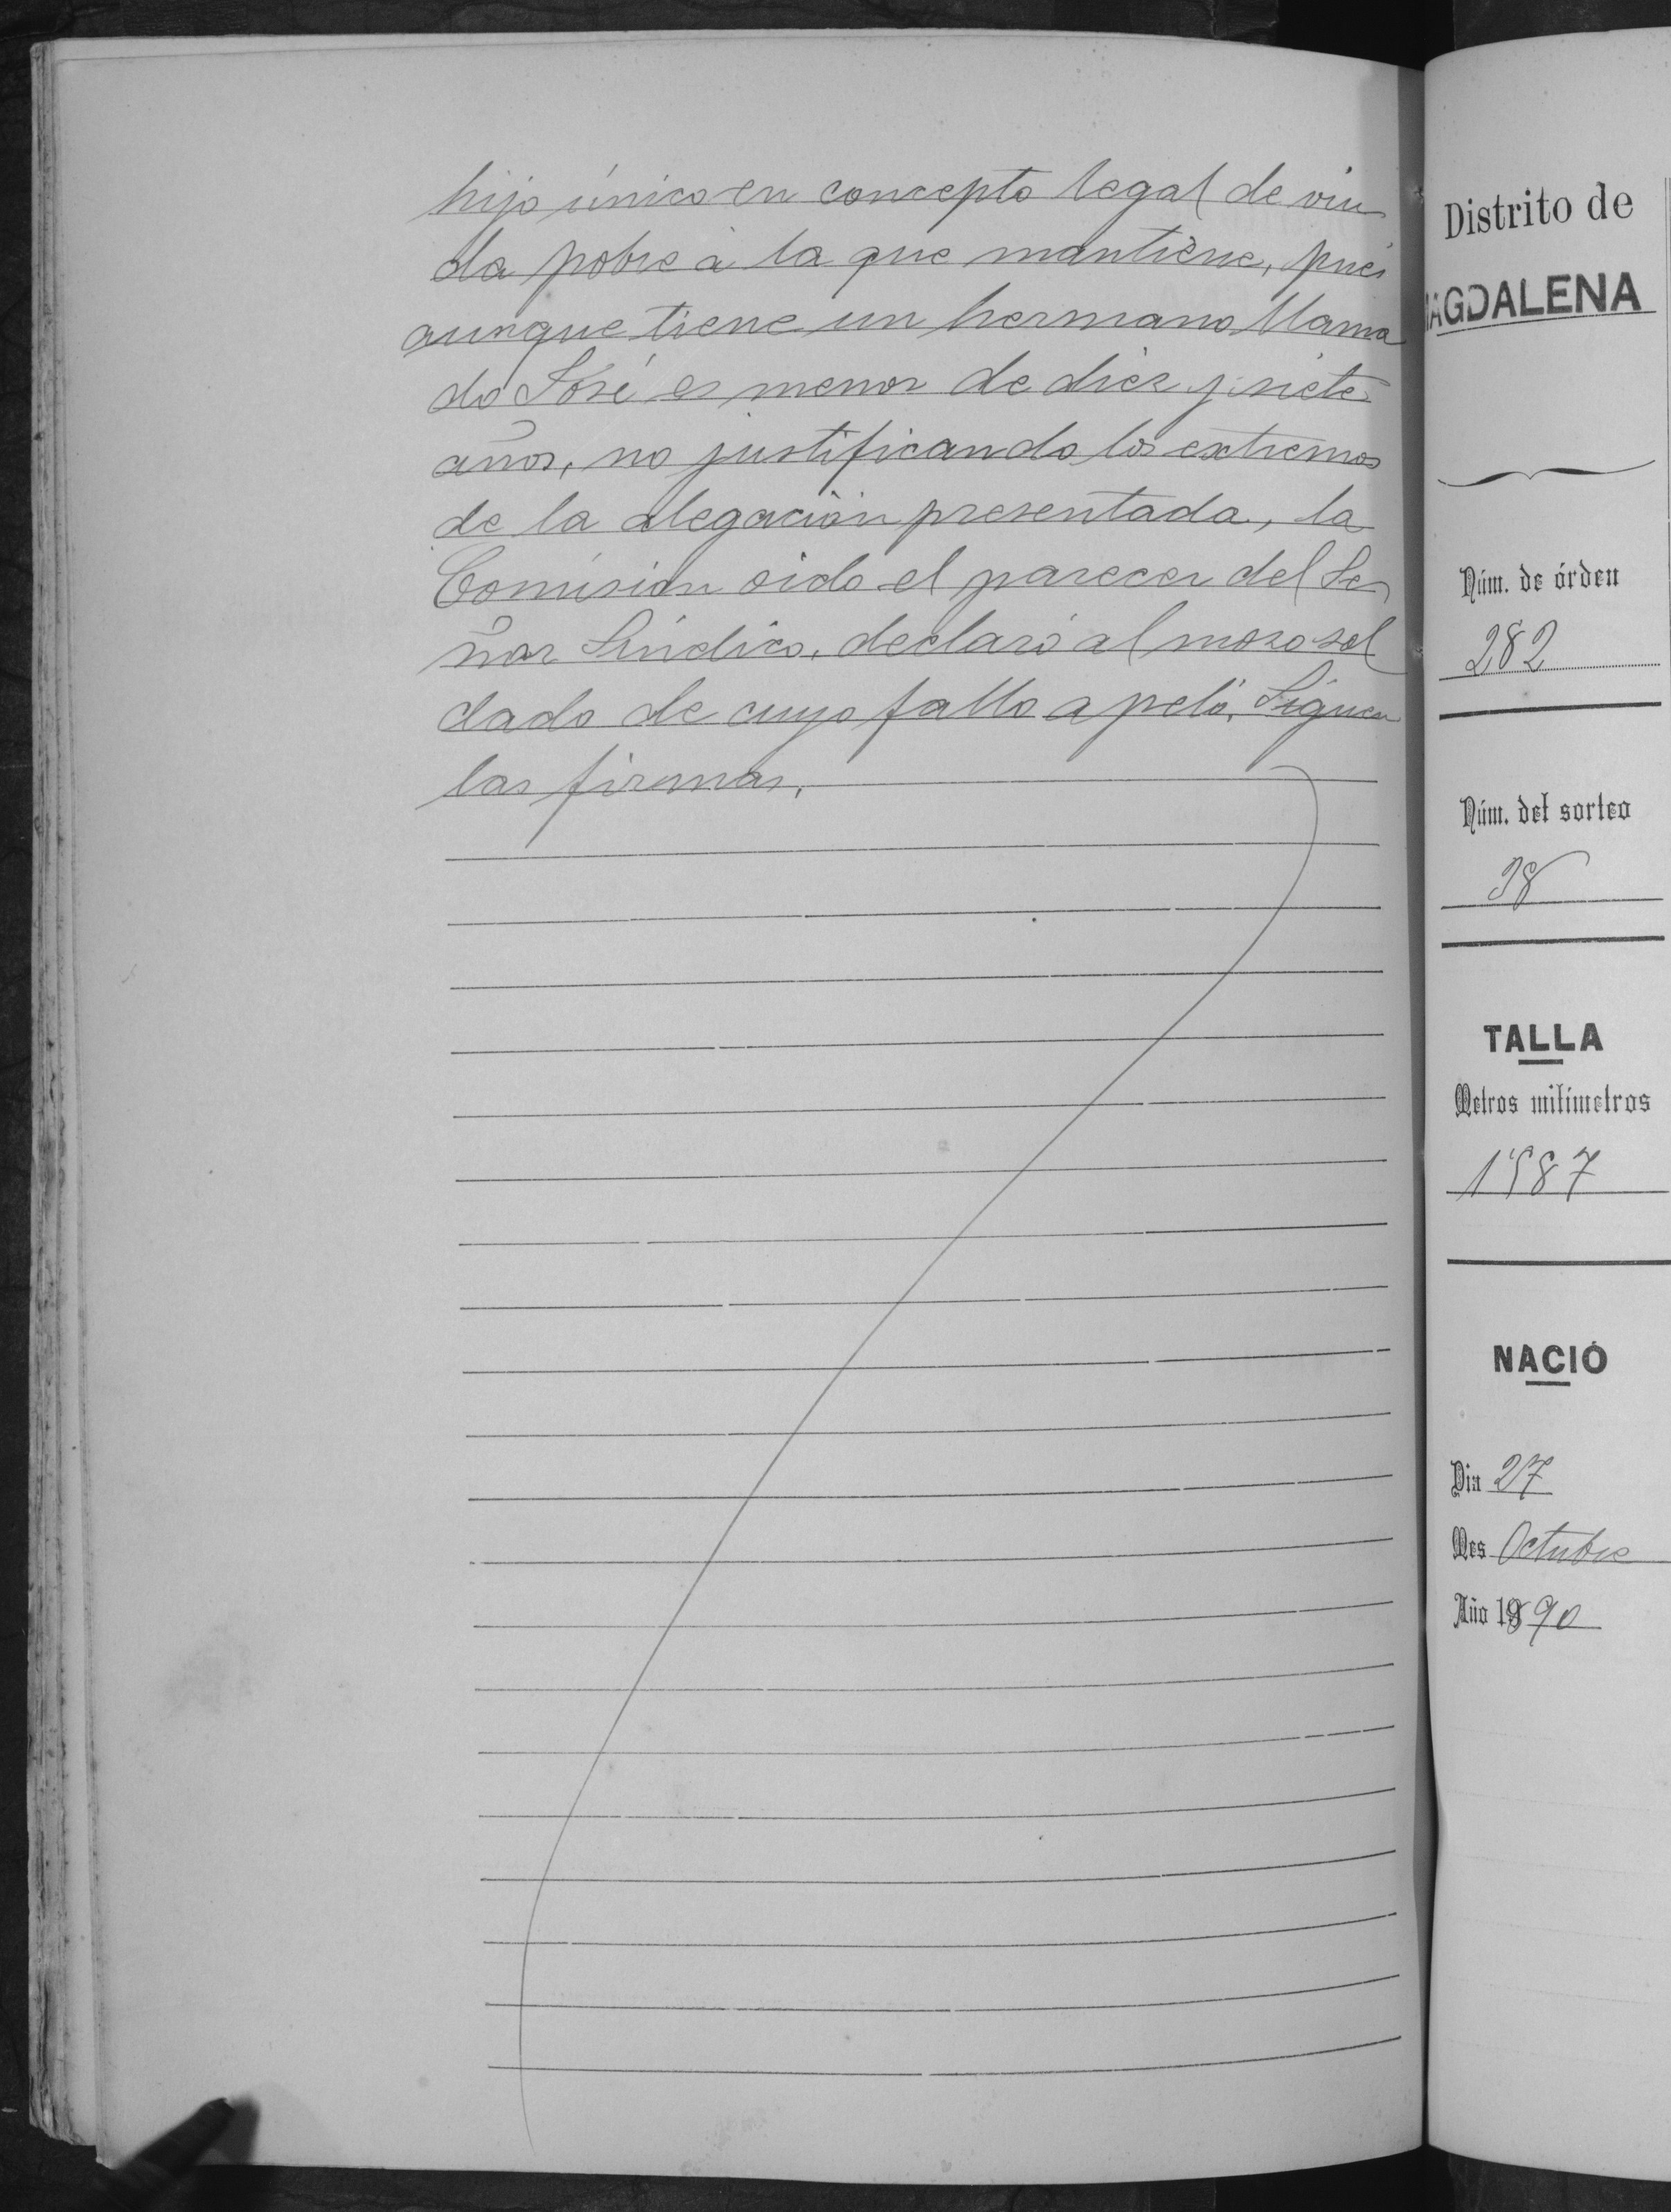 hijo único en concepto legal de viu
da pobre á la que mantiene, pues
aunque tiene un hermano llama
do José es menor de diez y siete
años, no justificando los extremos
de la alegación presentada, la
Comision oido el parecer del Se
ñor Sindico, declaró al mozo sol
dado de cuyo fallo apeló. Siguen
las firmas.
Distrito de
MAGDALENA
Núm. de órden
282
Núm. del sorteo
38
TALLA
Metros milímetros
1'587
NACIÓ
Dia 27
Mes Octubre
Año 1890